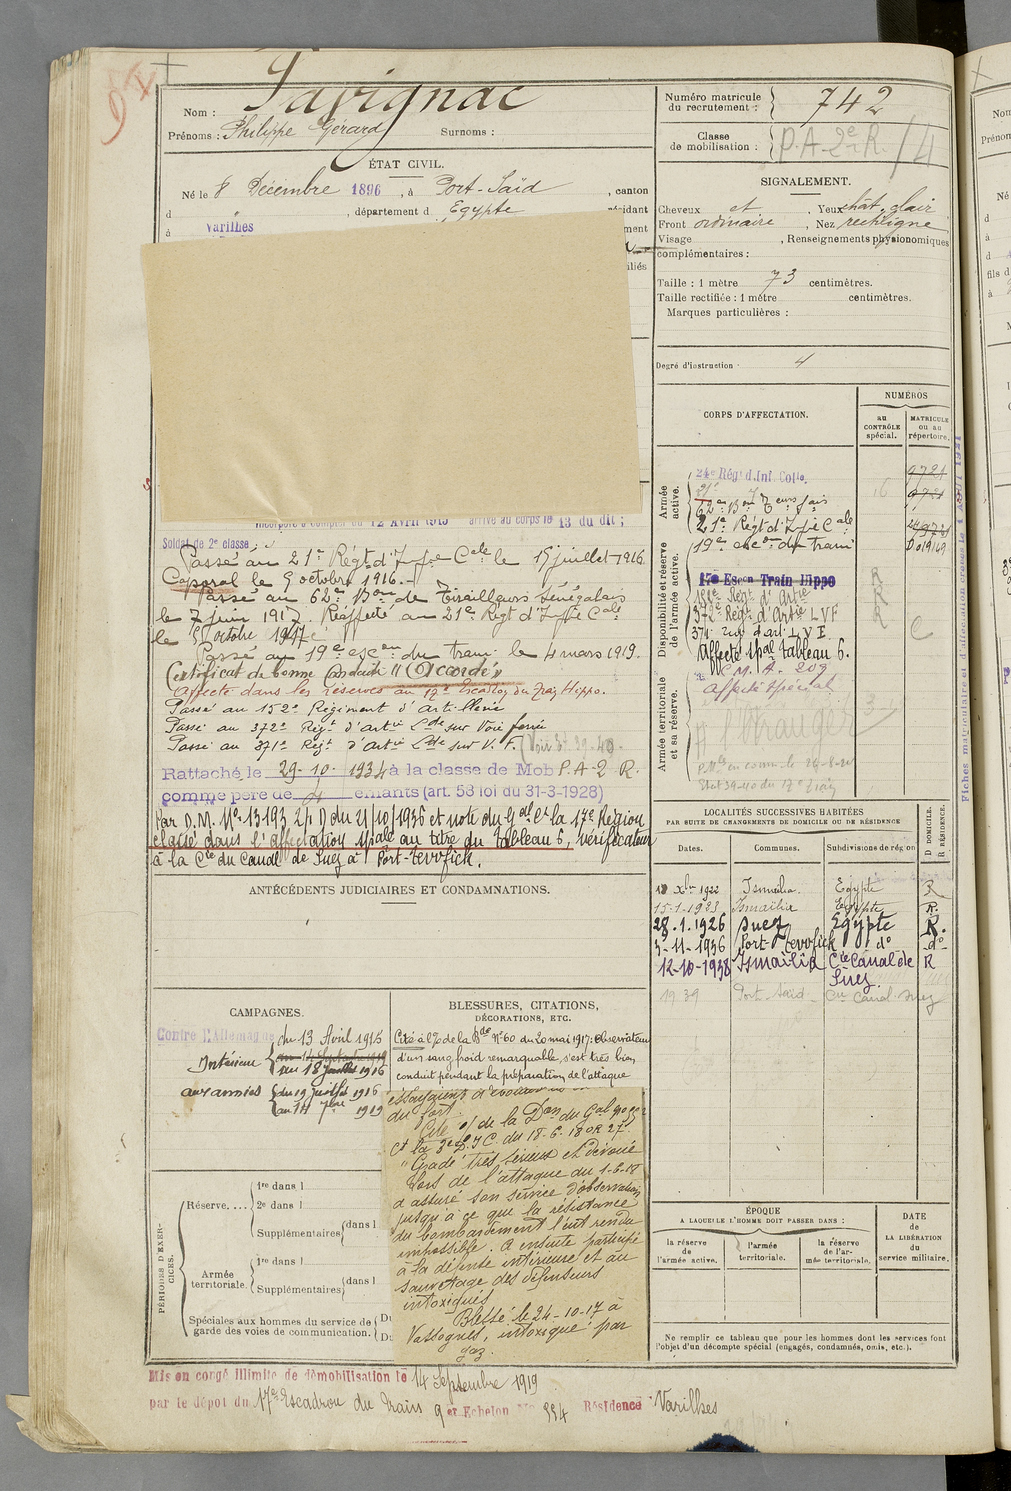 Nom : Savignac
Prénoms : Philippe Gérard Surnoms :
ÉTAT CIVIL.
Né le 8 Décembre 1896, à Port-Saïd, canton
d , département d Egypte résidant
à Varilhes
Incorporé à compter du 12 Avril 1915 arrivé au corps le 13 du dit ;
Soldat de 2e classe
Passé au 21e Régt d'Infie Cale le 15 juillet 1916.
Caporal le 9 octobre 1916.
Passé au 62e Bon de Tirailleurs Sénégalais
le 7 juin 1917. Réaffecté au 21e Régt d'Infie Cale
le 5 octobre 1917
Passé au 19e escon du train le 4 mars 1919.
Certificat de bonne Conduite "Accordé"
Affecté dans les réserves au 17e Escadron du Train Hippo.
Passé au 152e Régiment d'Artillerie
Passé au 372e Régt d'Artie Lde sur Voie ferrée
Passé au 371e Régt d'Artie Lde sur V.F.
Rattaché le 29-10-1934 à la classe de Mob P.A-2 R.
comme père de 4 enfants (art. 58 loi du 31-3-1928)
Par D.M. No 13193 2/1 D du 21/10/1936 et note du Gal Ct la 17e Région
classé dans l'affectation spale au titre du tableau 6, vérificateur
à la Cie du Canal de Suez à Port-Tewfick.
ANTÉCÉDENTS JUDICIAIRES ET CONDAMNATIONS.
CAMPAGNES.
Contre l'Allemagne du 13 Avril 1915
Intérieur au 18 juillet 1916
aux armées du 19 juillet 1916
au 14 7bre 1919
BLESSURES, CITATIONS,
DÉCORATIONS, ETC.
Cité à l'O de la Bde No 60 du 20 mai 1917: Observateur
d'un sang froid remarquable, s'est très bien
conduit pendant la préparation de l'attaque
du fort.
Cité o/ de la Don du Gal
et la 3e D.I.C. du 18-6-18 OR 27.
"Gradé très sérieux et dévoué
Lors de l'attaque du 1-6-18
a assuré son service d'observation
jusqu'à ce que la résistance
du bombardement l'eut rendu
impossible. A ensuite participé
à la défense intérieure et au
sauvetage des défenseurs
intoxiqués
Blessé le 24-10-17 à
Vassognes, intoxiqué par
gaz.
PÉRIODES D'EXERCICES.
Réserve....
1re dans l
2e dans l
Supplémentaires dans l
Armée territoriale.
1re dans l
Supplémentaires dans l
Spéciales aux hommes du service de
garde des voies de communication.
Mis en congé illimité de démobilisation le 14 Septembre 1919
par le dépôt du 17e Escadron du Train 9er Echelon No 334 Résidence : Varilhes
Numéro matricule
du recrutement : 742
Classe
de mobilisation : P.A-2e R. /4
SIGNALEMENT.
Cheveux et , Yeux chât. clair
Front ordinaire , Nez rectiligne
Visage , Renseignements physionomiques
complémentaires :
Taille : 1 mètre 73 centimètres.
Taille rectifiée : 1 mètre centimètres.
Marques particulières :
Degré d'instruction 4
CORPS D'AFFECTATION.
NUMÉROS
AU CONTRÔLE spécial.
MATRICULE ou au répertoire.
Armée active.
24e Régt d'Inf. Colle.
62e Bon Tirs gais
21e Régt d'Infie Cale
19e escon du train
Disponibilité et réserve de l'armée active.
17e Escon Train Hippo
372e Régt d'Artie LVF
371 Régt d'art LVF
Affecté spal tableau 6.
Armée territoriale et sa réserve.
Affecté spécial
l'Etranger
Fiches matriculaire et d'affection créées le
LOCALITÉS SUCCESSIVES HABITÉES
PAR SUITE DE CHANGEMENTS DE DOMICILE OU DE RÉSIDENCE
Dates. Communes. Subdivisions de région D DOMICILE. R RÉSIDENCE.
Xbre 1922 Ismaïlia. Egypte R
15-1-1923 Ismaïlia Egypte R.
28.1.1926 Suez Egypte R.
3-11-1936 Port-Tewfick do do
12-10-1938 Ismaïlia Cie Canal de Suez. R
1939 Port-Saïd Cie Canal Suez
ÉPOQUE
A LAQUELLE L'HOMME DOIT PASSER DANS :
la réserve de l'armée active.
l'armée territoriale.
la réserve de l'armée territoriale.
DATE de LA LIBÉRATION du service militaire.
Ne remplir ce tableau que pour les hommes dont les services font
l'objet d'un décompte spécial (engagés, condamnés, omis, etc.).